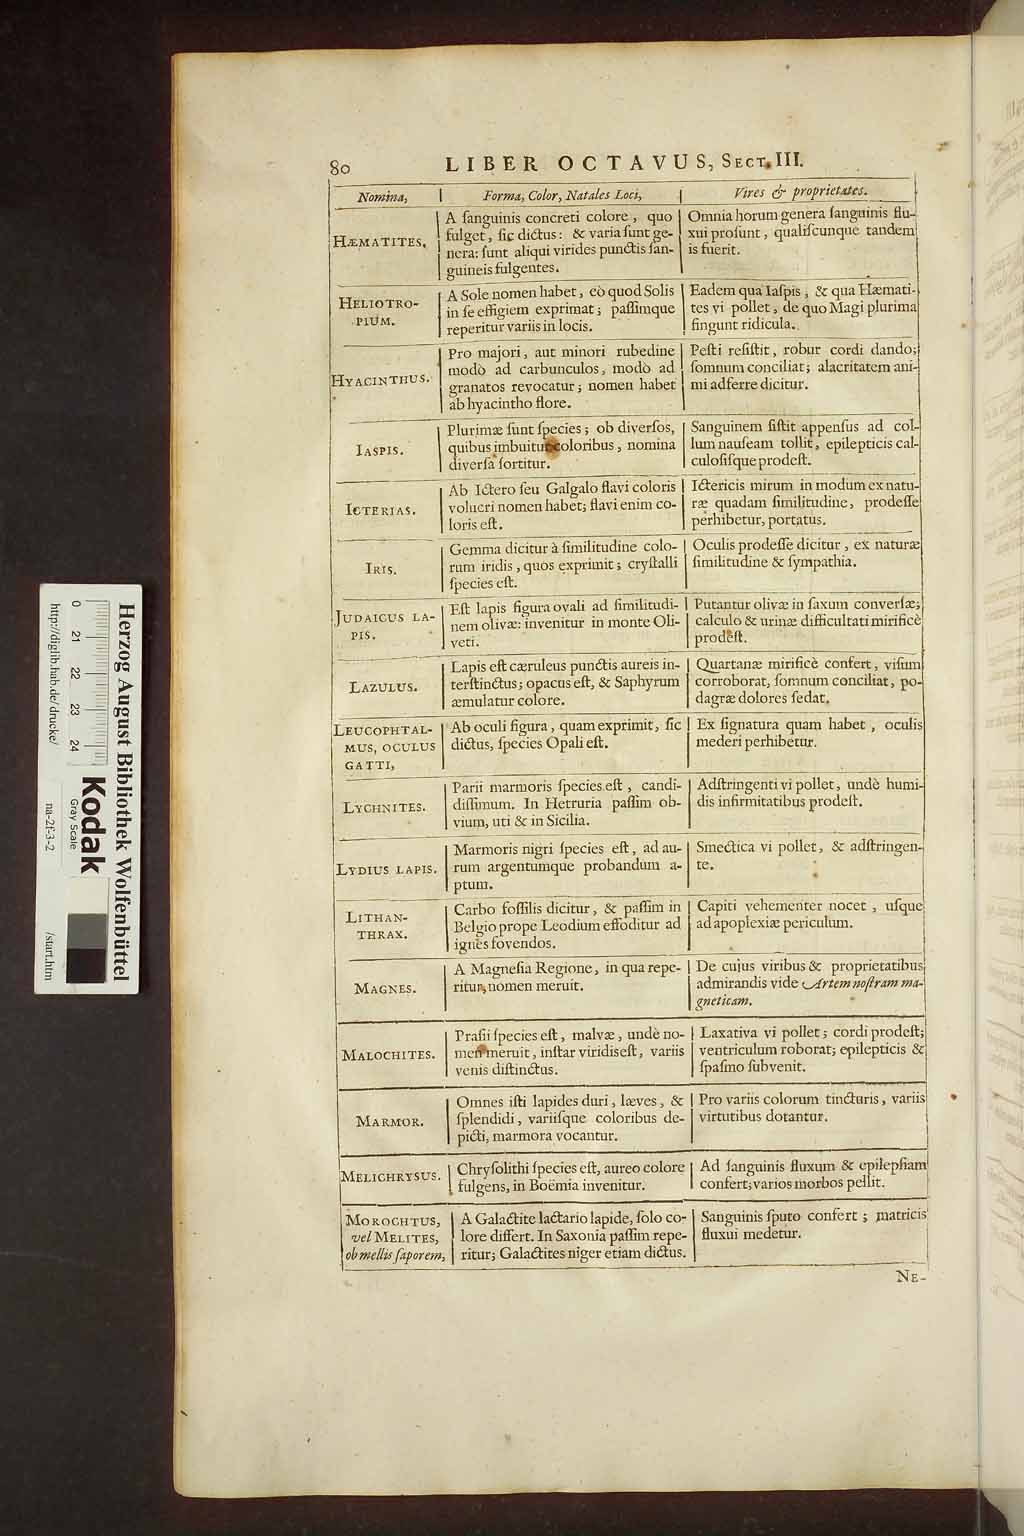 80 LIBER OCTAVUS, SECT. III.
Nomina, | Forma, Color, Natales Loci, | Vires & proprietates.
HÆMATITES,
A ſanguinis concreti colore, quo
fulget, ſic dictus: & varia ſunt ge-
nera: ſunt aliqui virides punctis ſan-
guineis fulgentes.
Omnia horum genera ſanguinis flu-
xui proſunt, qualiſcunque tandem
is fuerit.
HELIOTRO-
PIUM.
A Sole nomen habet, eò quod Solis
in ſe effigiem exprimat; paſſimque
reperitur variis in locis.
Eadem qua Iaſpis, & qua Hæmati-
tes vi pollet, de quo Magi plurima
fingunt ridicula.
HYACINTHUS.
Pro majori, aut minori rubedine
modò ad carbunculos, modò ad
granatos revocatur; nomen habet
ab hyacintho flore.
Peſti reſiſtit, robur cordi dando;
ſomnum conciliat; alacritatem ani-
mi adferre dicitur.
IASPIS.
Plurimæ ſunt ſpecies; ob diverſos,
quibus imbuitur coloribus, nomina
diverſa ſortitur.
Sanguinem ſiſtit appenſus ad col-
lum nauſeam tollit, epilepticis cal-
culoſiſque prodeſt.
ICTERIAS.
Ab Ictero ſeu Galgalo flavi coloris
volucri nomen habet; flavi enim co-
loris eſt.
Ictericis mirum in modum ex natu-
ræ quadam ſimilitudine, prodeſſe
perhibetur, portatus.
IRIS.
Gemma dicitur à ſimilitudine colo-
rum iridis, quos exprimit; cryſtalli
ſpecies eſt.
Oculis prodeſſe dicitur, ex naturæ
ſimilitudine & ſympathia.
JUDAICUS LA-
PIS.
Eſt lapis figura ovali ad ſimilitudi-
nem olivæ: invenitur in monte Oli-
veti.
Putantur olivæ in ſaxum converſæ;
calculo & urinæ difficultati mirificè
prodeſt.
LAZULUS.
Lapis eſt cæruleus punctis aureis in-
terſtinctus; opacus eſt, & Saphyrum
æmulatur colore.
Quartanæ mirificè confert, viſum
corroborat, ſomnum conciliat, po-
dagræ dolores ſedat.
LEUCOPHTAL-
MUS, OCULUS
GATTI,
Ab oculi figura, quam exprimit, ſic
dictus, ſpecies Opali eſt.
Ex ſignatura quam habet, oculis
mederi perhibetur.
LYCHNITES.
Parii marmoris ſpecies eſt, candi-
diſſimum. In Hetruria paſſim ob-
vium, uti & in Sicilia.
Adſtringenti vi pollet, undè humi-
dis infirmitatibus prodeſt.
LYDIUS LAPIS.
Marmoris nigri ſpecies eſt, ad au-
rum argentumque probandum a-
ptum.
Smectica vi pollet, & adſtringen-
te.
LITHAN-
THRAX.
Carbo foſſilis dicitur, & paſſim in
Belgio prope Leodium effoditur ad
ignes fovendos.
Capiti vehementer nocet, uſque
ad apoplexiæ periculum.
MAGNES.
A Magneſia Regione, in qua repe-
ritur, nomen meruit.
De cujus viribus & proprietatibus
admirandis vide Artem noſtram ma-
gneticam.
MALOCHITES.
Praſii ſpecies eſt, malvæ, undè no-
men meruit, inſtar viridis eſt, variis
venis diſtinctus.
Laxativa vi pollet; cordi prodeſt;
ventriculum roborat; epilepticis &
ſpaſmo ſubvenit.
MARMOR.
Omnes iſti lapides duri, læves, &
ſplendidi, variiſque coloribus de-
picti, marmora vocantur.
Pro variis colorum tincturis, variis
virtutibus dotantur.
MELICHRYSUS.
Chryſolithi ſpecies eſt, aureo colore
fulgens, in Boëmia invenitur.
Ad ſanguinis fluxum & epilepſiam
confert; varios morbos pellit.
MOROCHTUS,
vel MELITES,
ob mellis ſaporem,
A Galactite lactario lapide, ſolo co-
lore differt. In Saxonia paſſim repe-
ritur; Galactites niger etiam dictus.
Sanguinis ſputo confert; matricis
fluxui medetur.
NE-
Herzog August Bibliothek Wolfenbüttel
Kodak
Gray Scale
0 21 22 23 24
http://diglib.hab.de/drucke/ na-2f-3-2 /start.htm